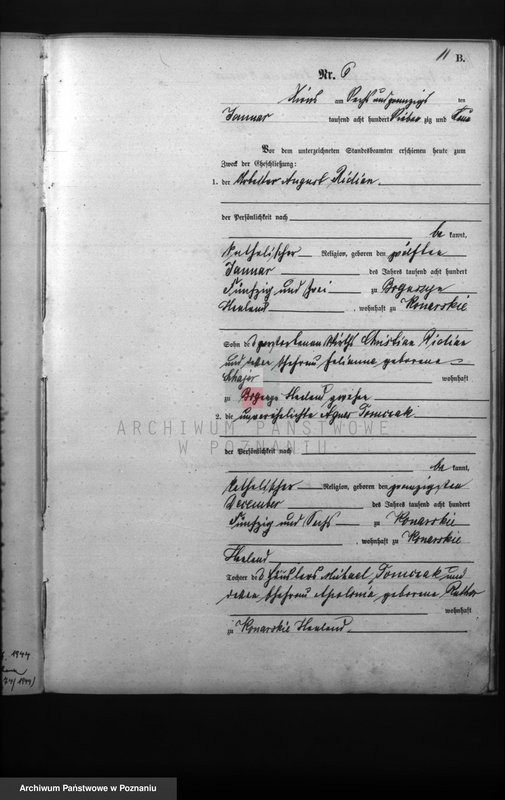 11 B.
Nr. 6
Xions am Sechs und zwanzigs ten
Januar tausend acht hundert Sieben zig und Neun
Vor dem unterzeichneten Standesbeamten erschienen heute zum
Zweck der Eheschließung:
1. der Arbeiter August
der Persönlichkeit nach
be kannt,
katholischer Religion, geboren den zwölften
Januar des Jahres tausend acht hundert
Fünfzig und Drei zu
Hauland, wohnhaft zu Konarskie
Sohn de Wirths Christian
und dessen Ehefrau geborene
wohnhaft
zu Hauland
2. die unverehelichte Agnes Tomczak
der Persönlichkeit nach
be kannt,
katholischer Religion, geboren den zwanzigsten
December des Jahres tausend acht hundert
Fünfzig und Sechs zu Konarskie
, wohnhaft zu Konarskie
Hauland
Tochter de Häuslers Michael Tomczak und
dessen Ehefrau Apolonia geborene
wohnhaft
zu Konarskie Hauland.
1944
24/1944)
ARCHIWUM PAŃSTWOWE
W POZNANIU
Archiwum Państwowe w Poznaniu